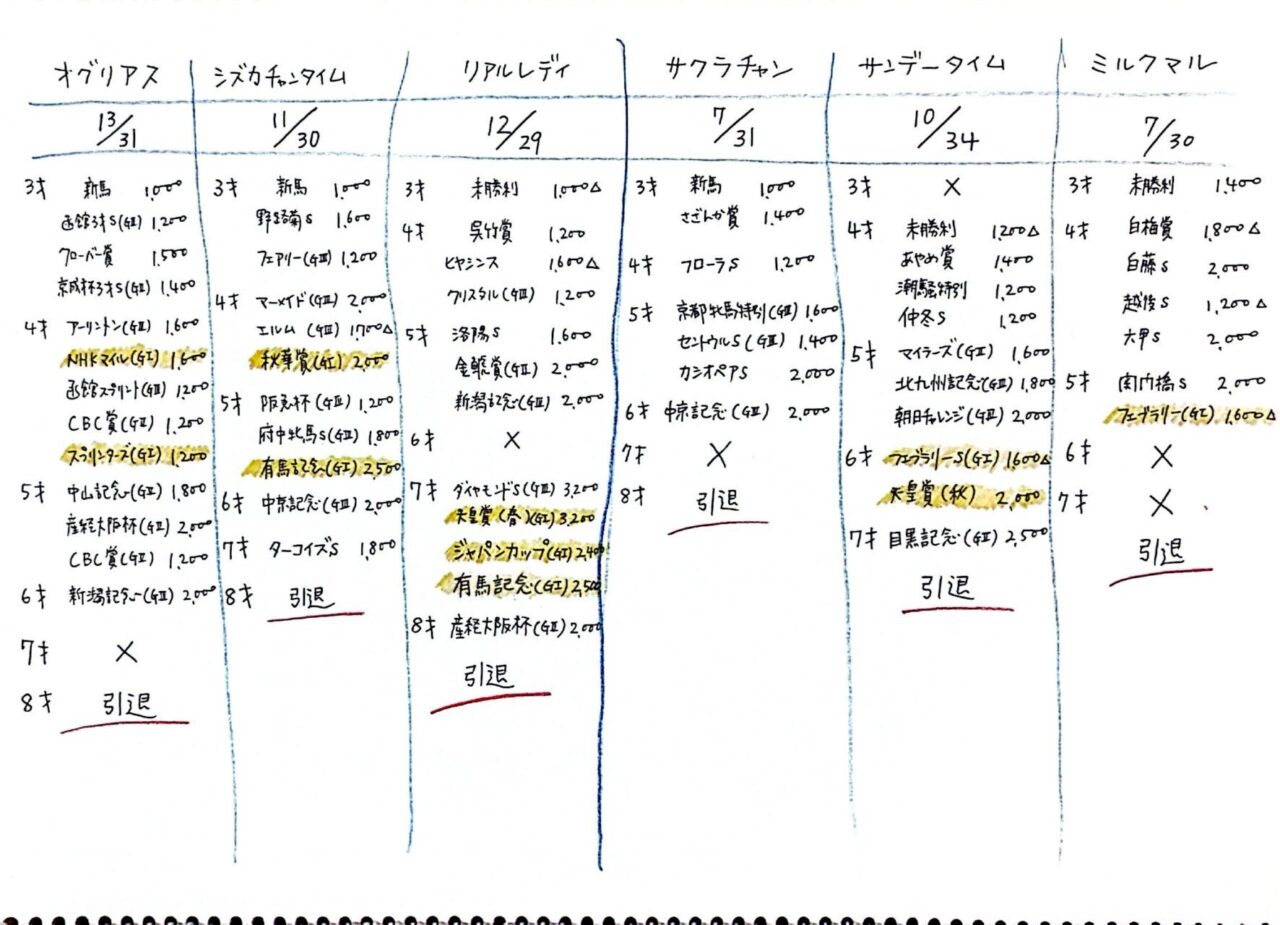 オグリアス
13/31
3才 新馬 1,000
函館3才S(GⅢ) 1,200
クローバー賞 1,500
京成杯3才S(GⅡ) 1,400
4才 アーリントン(GⅢ) 1,600
NHKマイル(GⅠ) 1,600
函館スプリント(GⅢ) 1,200
CBC賞(GⅡ) 1,200
スプリンターズ(GⅠ) 1,200
5才 中山記念(GⅡ) 1,800
産経大阪杯(GⅡ) 2,000
CBC賞(GⅡ) 1,200
6才 新潟記念(GⅢ) 2,000
7才 ×
8才 引退
シズカチャンタイム
11/30
3才 新馬 1,000
野路菊S 1,600
フェアリー(GⅢ) 1,200
4才 マーメイド(GⅢ) 2,000
エルム(GⅢ) 1,700△
秋華賞(GⅠ) 2,000
5才 阪急杯(GⅢ) 1,200
府中牝馬S(GⅢ) 1,800
有馬記念(GⅠ) 2,500
6才 中京記念(GⅢ) 2,000
7才 ターコイズS 1,800
8才 引退
リアルレディ
12/29
3才 未勝利 1,000△
4才 呉竹賞 1,200
ヒヤシンス 1,600△
クリスタル(GⅢ) 1,200
5才 洛陽S 1,600
金鯱賞(GⅡ) 2,000
新潟記念(GⅢ) 2,000
6才 ×
7才 ダイヤモンドS(GⅢ) 3,200
天皇賞(春)(GⅠ) 3,200
ジャパンカップ(GⅠ) 2,400
有馬記念(GⅠ) 2,500
8才 産経大阪杯(GⅡ) 2,000
引退
サクラチャン
7/31
3才 新馬 1,000
さざんか賞 1,400
4才 フローラS 1,200
5才 京都牝馬特別(GⅢ) 1,600
セントウルS(GⅢ) 1,400
カシオペアS 2,000
6才 中京記念(GⅢ) 2,000
7才 ×
8才 引退
サンデータイム
10/34
3才 ×
4才 未勝利 1,200△
あやめ賞 1,400
潮騒特別 1,200
仲冬S 1,200
5才 マイラーズ(GⅡ) 1,600
北九州記念(GⅢ) 1,800
朝日チャレンジ(GⅢ) 2,000
6才 フェブラリーS(GⅠ) 1,600△
天皇賞(秋) 2,000
7才 目黒記念(GⅡ) 2,500
引退
ミルクマル
7/30
3才 未勝利 1,400
4才 白梅賞 1,800△
白藤S 2,000
越後S 1,200△
大甲S 2,000
5才 関門橋S 2,000
フェブラリー(GⅠ) 1,600△
6才 ×
7才 ×
引退